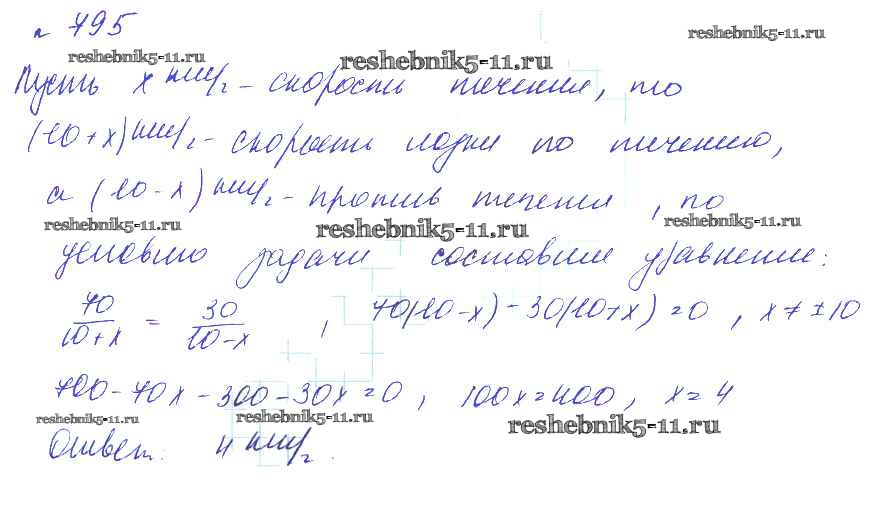 № 795
reshebnik5-11.ru reshebnik5-11.ru reshebnik5-11.ru
Пусть x км/ч - скорость течения, то
(10+x) км/ч - скорость лодки по течению,
а (10-x) км/ч - против течения, по
reshebnik5-11.ru reshebnik5-11.ru reshebnik5-11.ru
условию задачи составим уравнение:
70/(10+x) = 30/(10-x) , 70(10-x) - 30(10+x) = 0 , x ≠ ±10
700 - 70x - 300 - 30x = 0 , 100x = 400 , x = 4
reshebnik5-11.ru reshebnik5-11.ru reshebnik5-11.ru
Ответ: 4 км/ч.